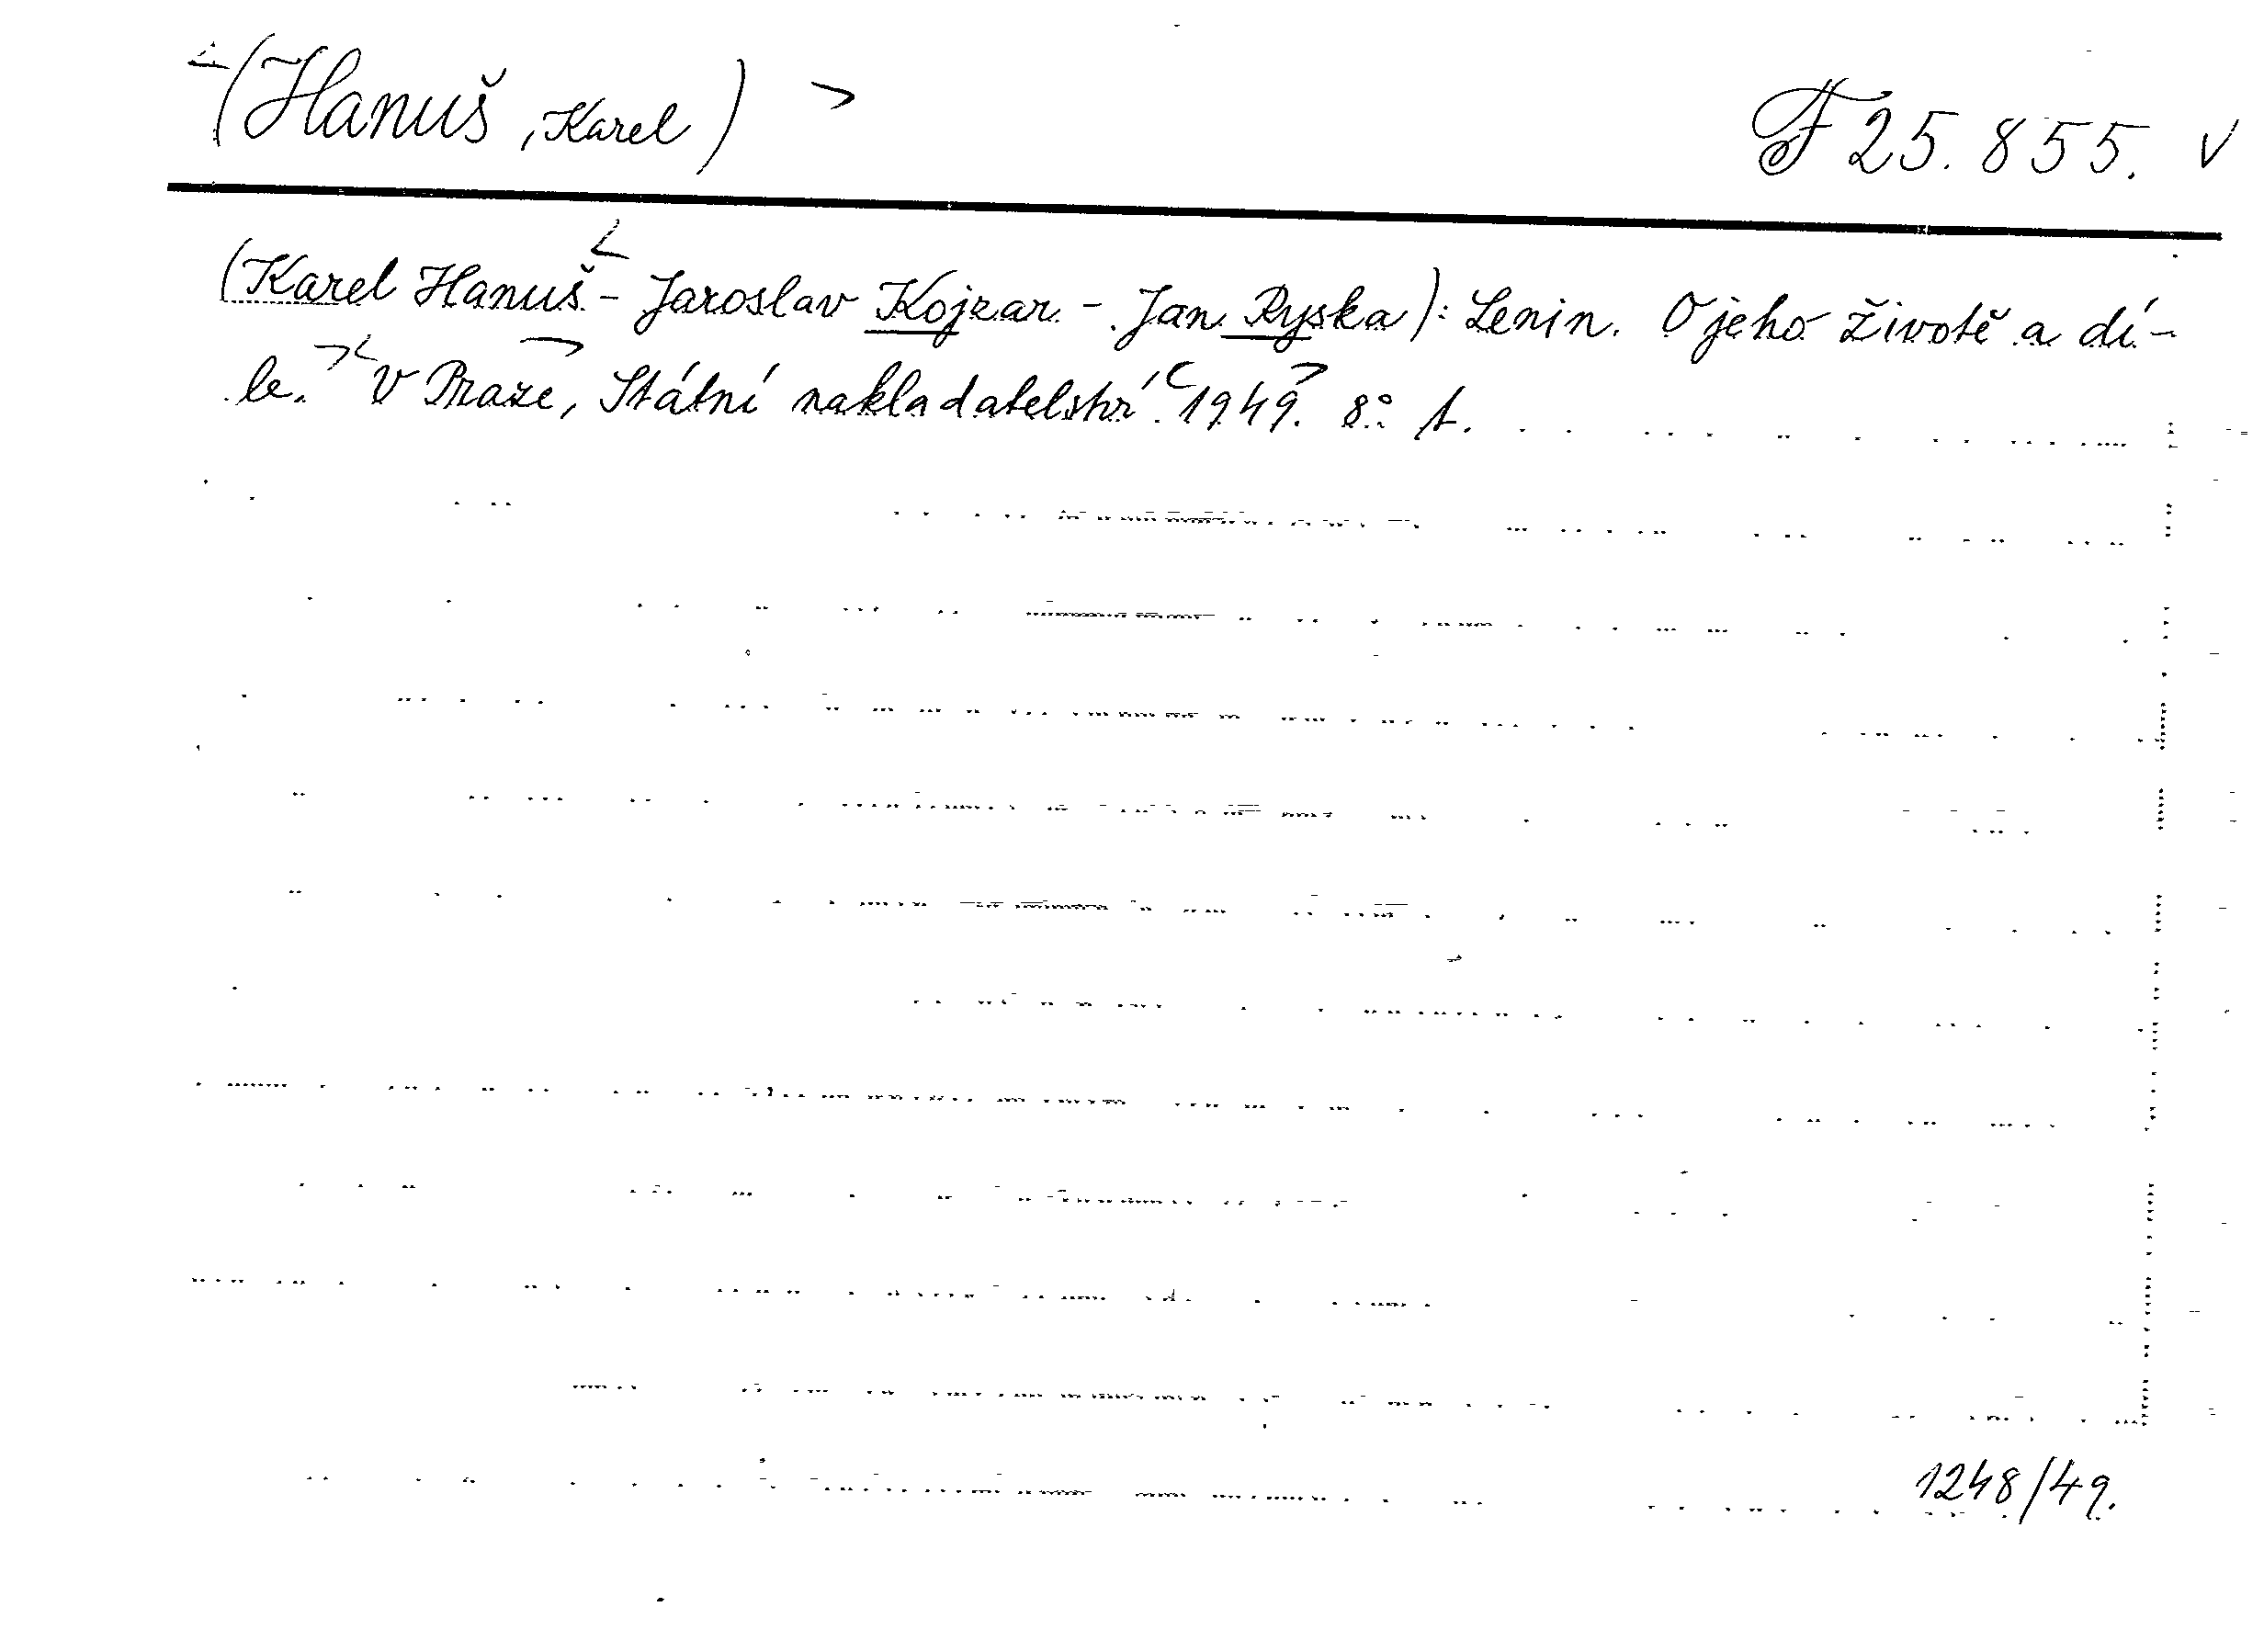 (Hanuš, Karel) F 25.855. v
(Karel Hanuš - Jaroslav Kojzar - Jan Ryska): Lenin. O jeho životě a dí-
le. V Praze, Státní nakladatelství 1949. 8° 1.
1248/49.